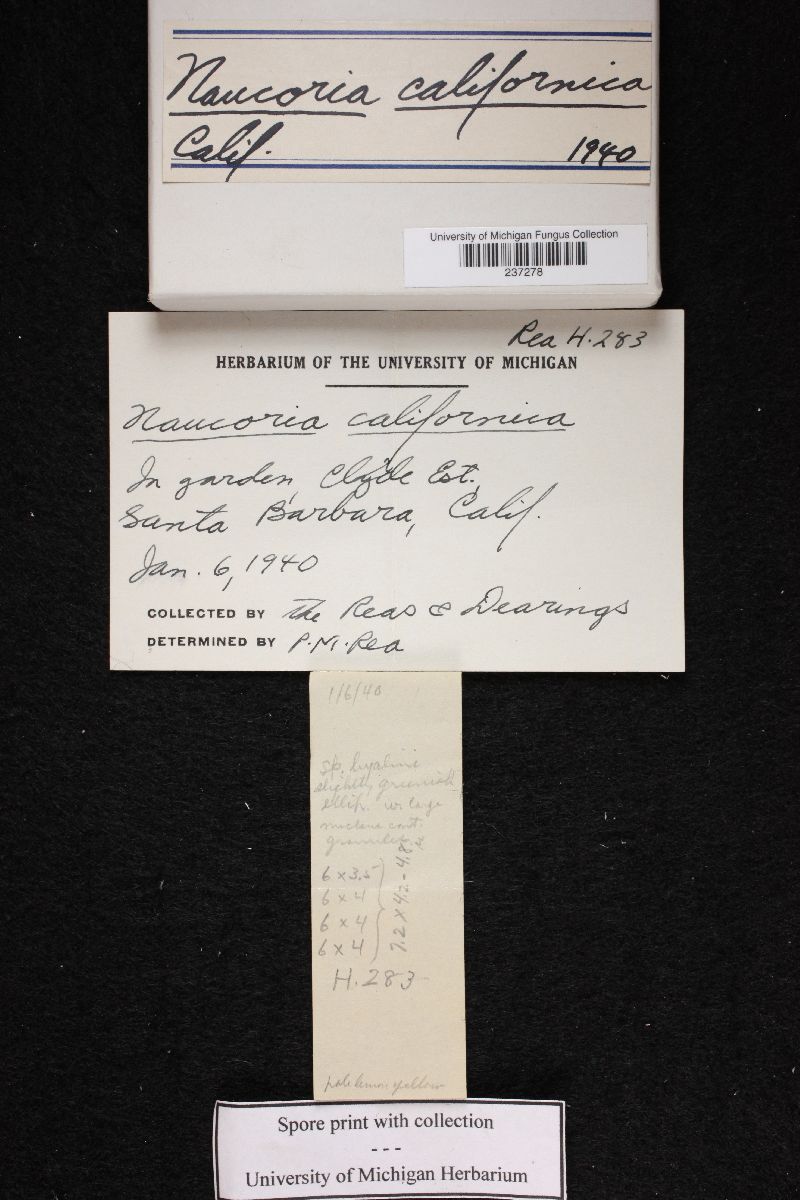 Naucoria californica
Calif. 1940
University of Michigan Fungus Collection
237278
Rea H.283
HERBARIUM OF THE UNIVERSITY OF MICHIGAN
Naucoria californica
In garden, Clyde Est.,
Santa Barbara, Calif.
Jan. 6, 1940
COLLECTED BY The Reas & Dearings
DETERMINED BY P.M. Rea
1/6/40
sp. hyaline
slightly greenish
ellip. w. large
nucleus cont.
granules
6 x 3.5
6 x 4
6 x 4
6 x 4
7.2 x 4.2 - 4.8
H.283
pale lemon yellow
Spore print with collection
---
University of Michigan Herbarium